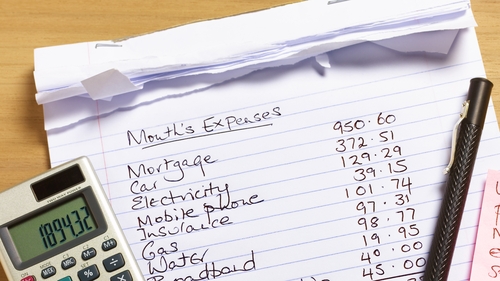 Month's Expenses
Mortgage 950·60
Car 372·51
Electricity 129·29
Mobile phone 39·15
Insurance 101·74
Gas 97·31
Water 98·77
Broadband 19·95
40·00
45·00
1894.32
MRC M- M+
% ÷